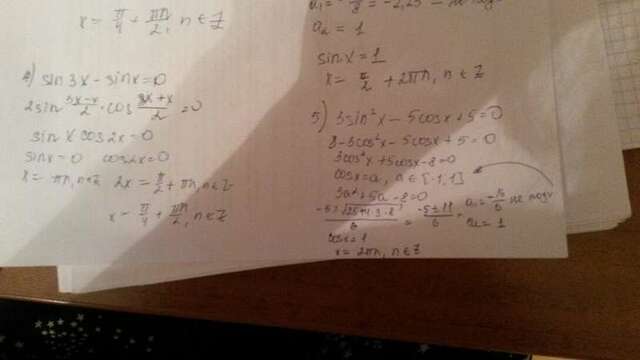 x = π/4 + πn/2, n ∈ Z
4) sin 3x - sinx = 0
2sin (3x-x)/2 · cos (3x+x)/2 = 0
sin x cos 2x = 0
sinx = 0 cos2x = 0
x = πn, n∈Z 2x = π/2 + πn, n∈Z
x = π/4 + πn/2, n∈Z
= -2,25 -
a₂ = 1
sinx = 1
x = π/2 + 2πn, n ∈ Z
5) 3sin²x - 5cosx + 5 = 0
8 - 3cos²x - 5cosx + 5 = 0
3cos²x + 5cosx - 8 = 0
cosx = a, n ∈ [-1,1]
3a² + 5a - 8 = 0
-5±√25+4·3·8 / 6 = -5±11 / 6 = a₁ = -16/6 не подх
a₂ = 1
cosx = 1
x = 2πn, n∈Z